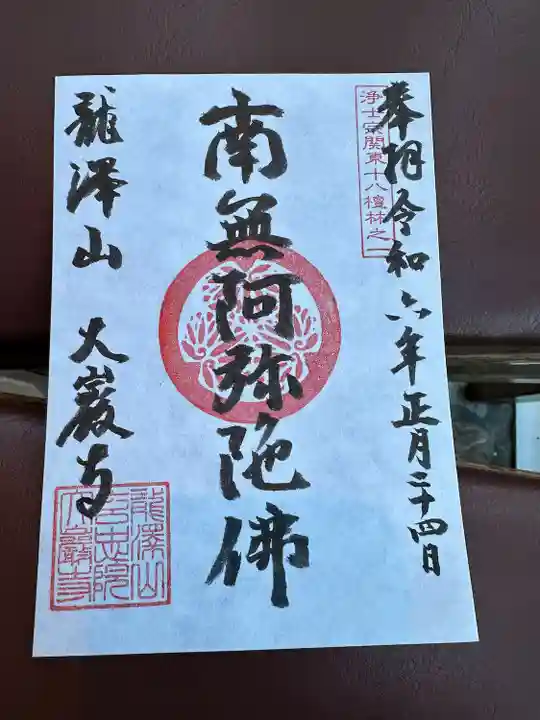 奉拝令和六年正月二十四日
浄土宗関東十八檀林之一
南無阿弥陀佛
龍澤山 大巖寺
龍澤山
玄忠院
大巖寺